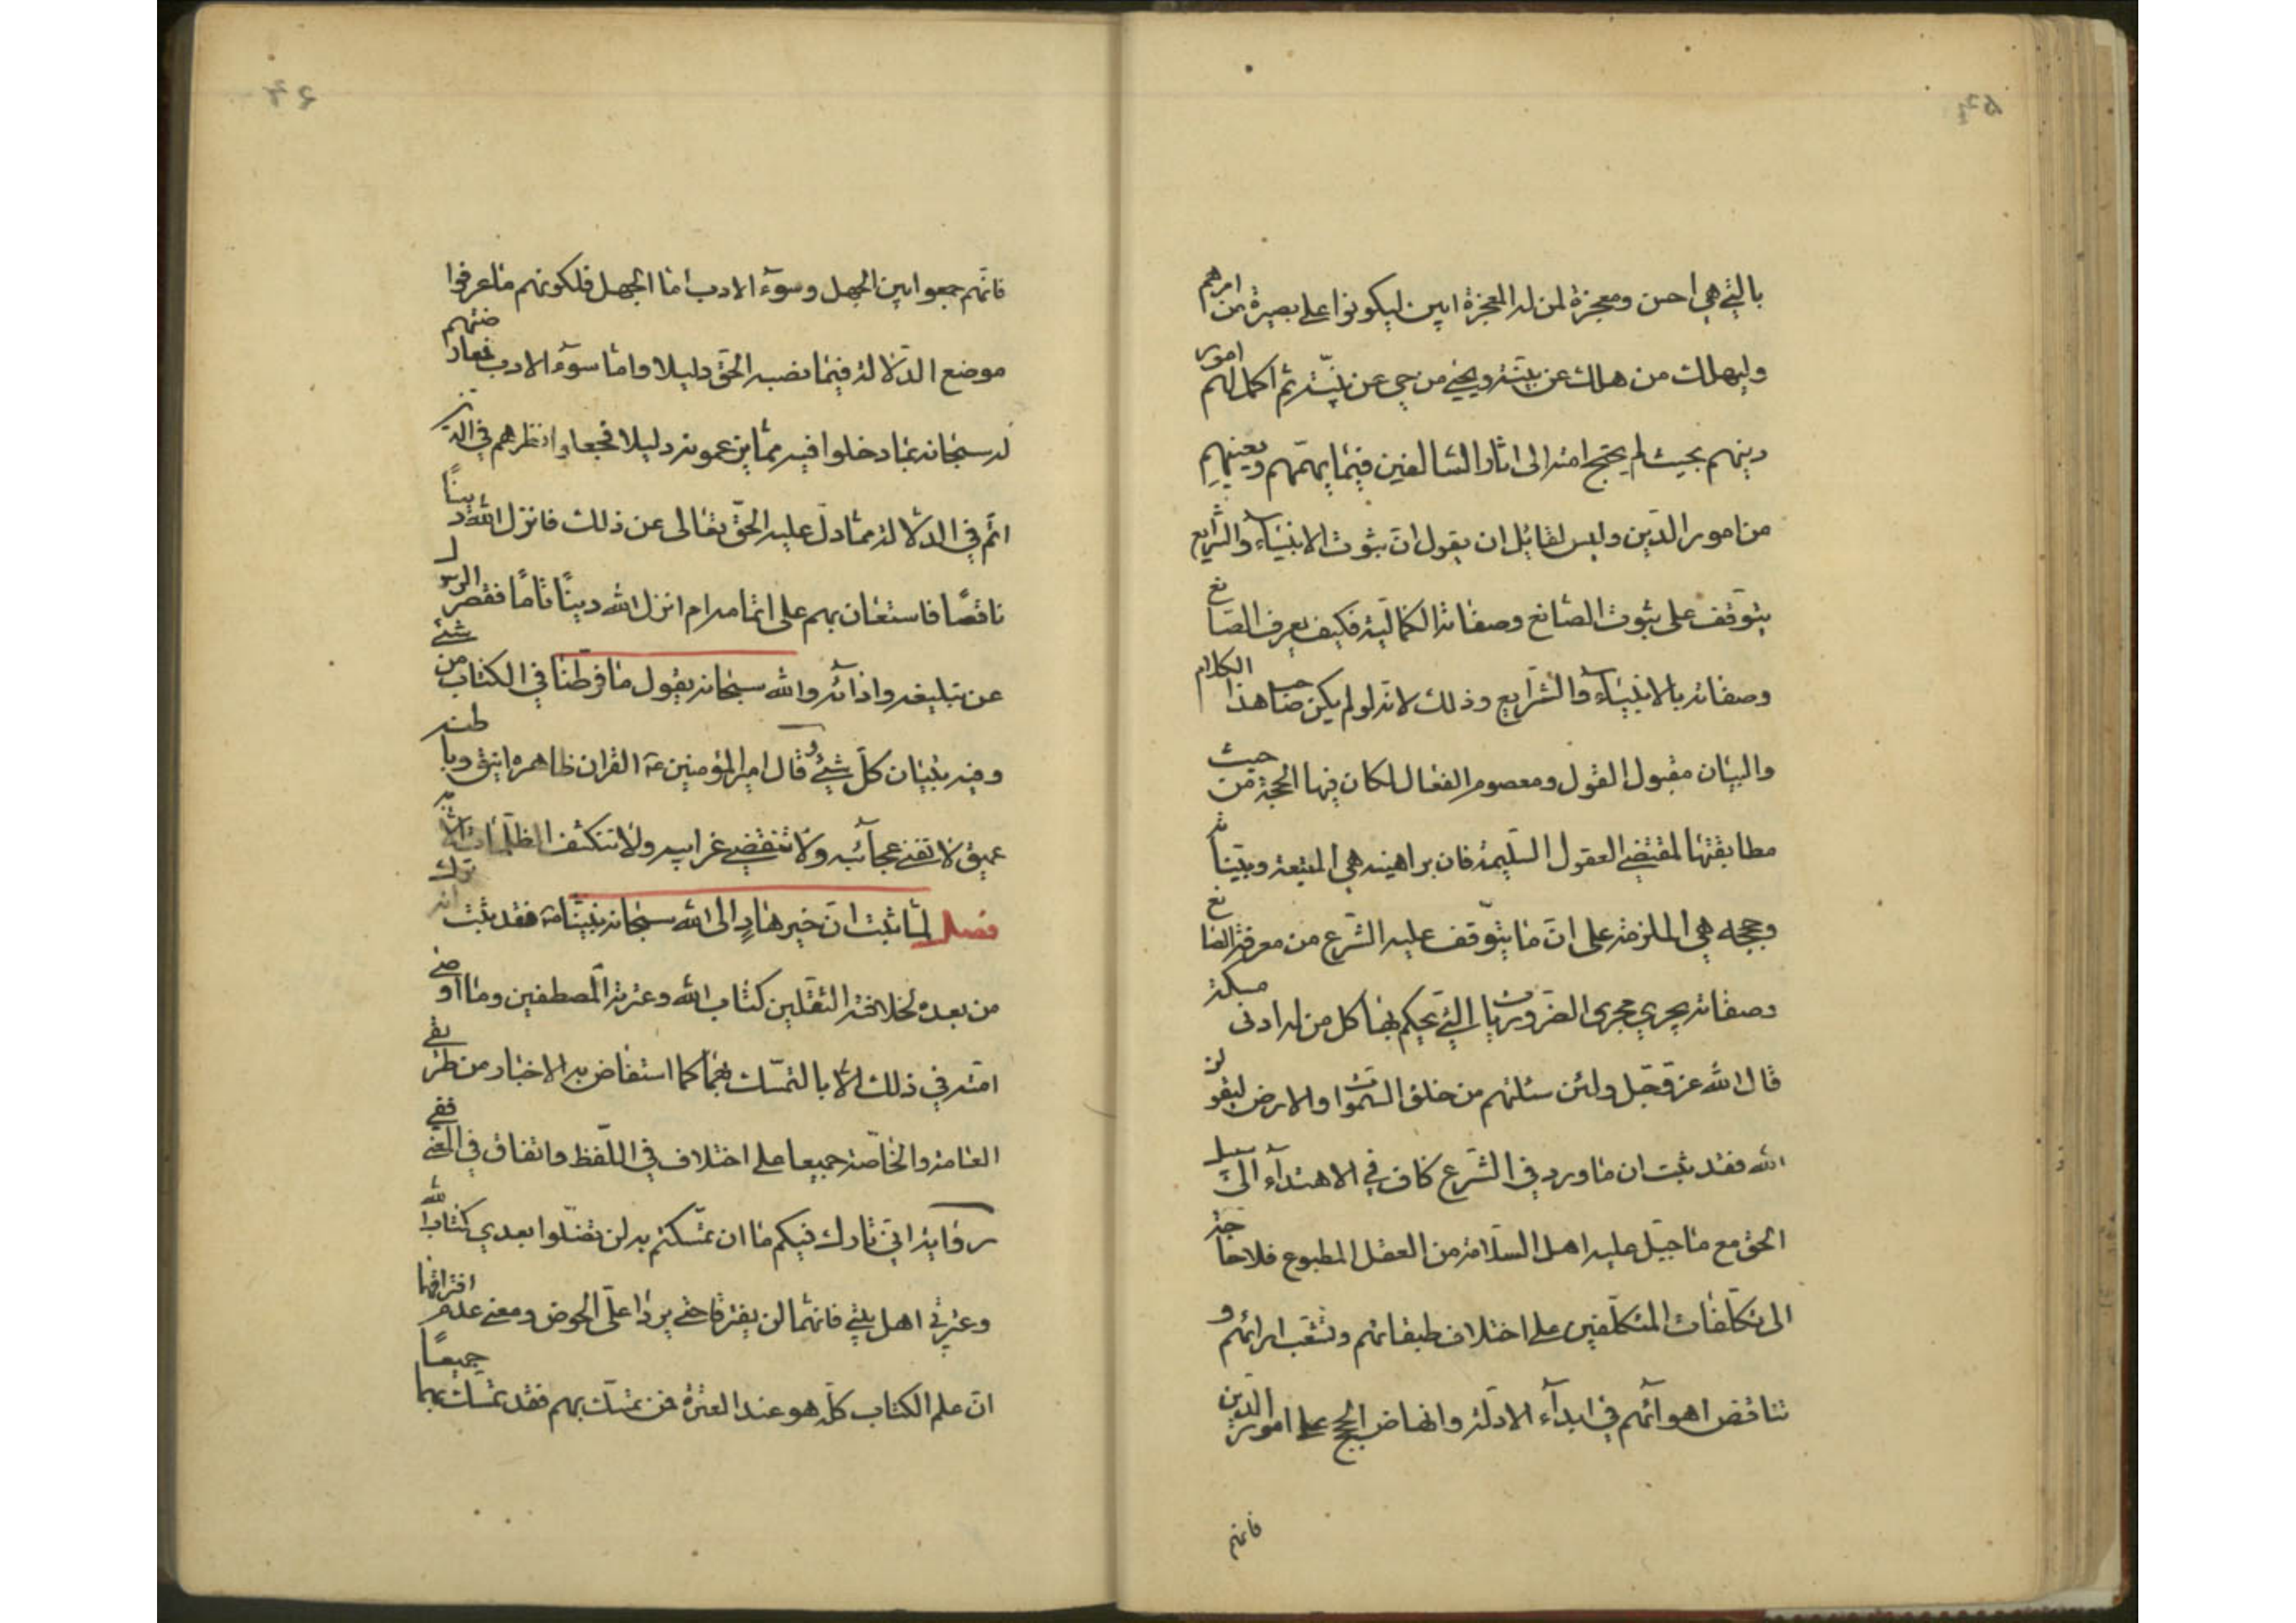 بالتي هي احسن ومعجزة لمن له المعجزة ابين ليكونوا على بصيرة من امرهم
وليهلك من هلك عن بينة ويحيى من حي عن بينة ثم اكمل لهم امور
دينهم بحيث لم يحتج امته الى اثار السالفين فيما يهمهم ويعينهم
من امور الدين وليس لقائل ان يقول ان ثبوت الانبياء والشرايع
يتوقف على ثبوت الصانع وصفاته الكمالية فكيف يعرف الصانع
وصفاته بالانبياء والشرايع وذلك لانه لو لم يكن صاحب هذا الكلام
والبيان مقبول القول ومعصوم الفعال لكان فيها الحجة من حيث
مطابقتها لمقتضى العقول السليمة فان براهينه هي المتبعة وبيناته
وحججه هي الملزمة على ان ما يتوقف عليه الشرع من معرفة الصانع
وصفاته يجري مجرى الضروريات التي يحكم بها كل من له ادنى مسكة
قال الله عز وجل ولئن سئلتهم من خلق السموات والارض ليقولن
الله فقد ثبت ان ما ورد في الشرع كاف في الاهتداء الى سبيل
الحق مع ما جبل عليه اهل السلامة من العقل المطبوع فلا حاجة
الى تكلفات المتكلفين على اختلاف طبقاتهم وتشعب ارائهم و
تناقض اهوائهم في ابداء الادلة وانهاض الحجج على امور الدين
فانهم
فانهم جمعوا بين الجهل وسوء الادب اما الجهل فلكونهم ما عرفوا
موضع الدلالة فيما نصبه الحق دليلا واما سوء الادب فمعارضتهم
له سبحانه بما دخلوا فيه مما يزعمونه دليلا فجعلوا نظرهم في الدين
اتم في الدلالة مما دل عليه الحق تعالى عن ذلك فانزل الله دينًا
ناقصًا فاستعان بهم على اتمامه ام انزل الله دينًا تامًا فقصر الرسول
عن تبليغه واذائه والله سبحانه يقول ما فرطنا في الكتاب من شئ
وفيه تبيان كل شئ وقال امير المؤمنين ع القران ظاهره انيق وباطنه
عميق لا تفنى عجائبه ولا تنقضي غرايبه ولا تنكشف الظلمات الا به
فصل لما ثبت ان خير هادٍ الى الله سبحانه نبينا ص فقد ثبت انه ترك
من بعده لخلافته الثقلين كتاب الله وعترته المصطفين وما اوصى
امته في ذلك الا بالتمسك بهما كما استفاض به الاخبار من طريقي
العامة والخاصة جميعا على اختلاف في اللفظ واتفاق في المعنى ففي
رواية اني تارك فيكم ما ان تمسكتم به لن تضلوا بعدي كتاب الله
وعترتي اهل بيتي فانهما لن يفترقا حتى يردا علي الحوض ومعنى عدم افتراقهما
ان علم الكتاب كله هو عند العترة فمن تمسك بهم فقد تمسك بهما جميعًا